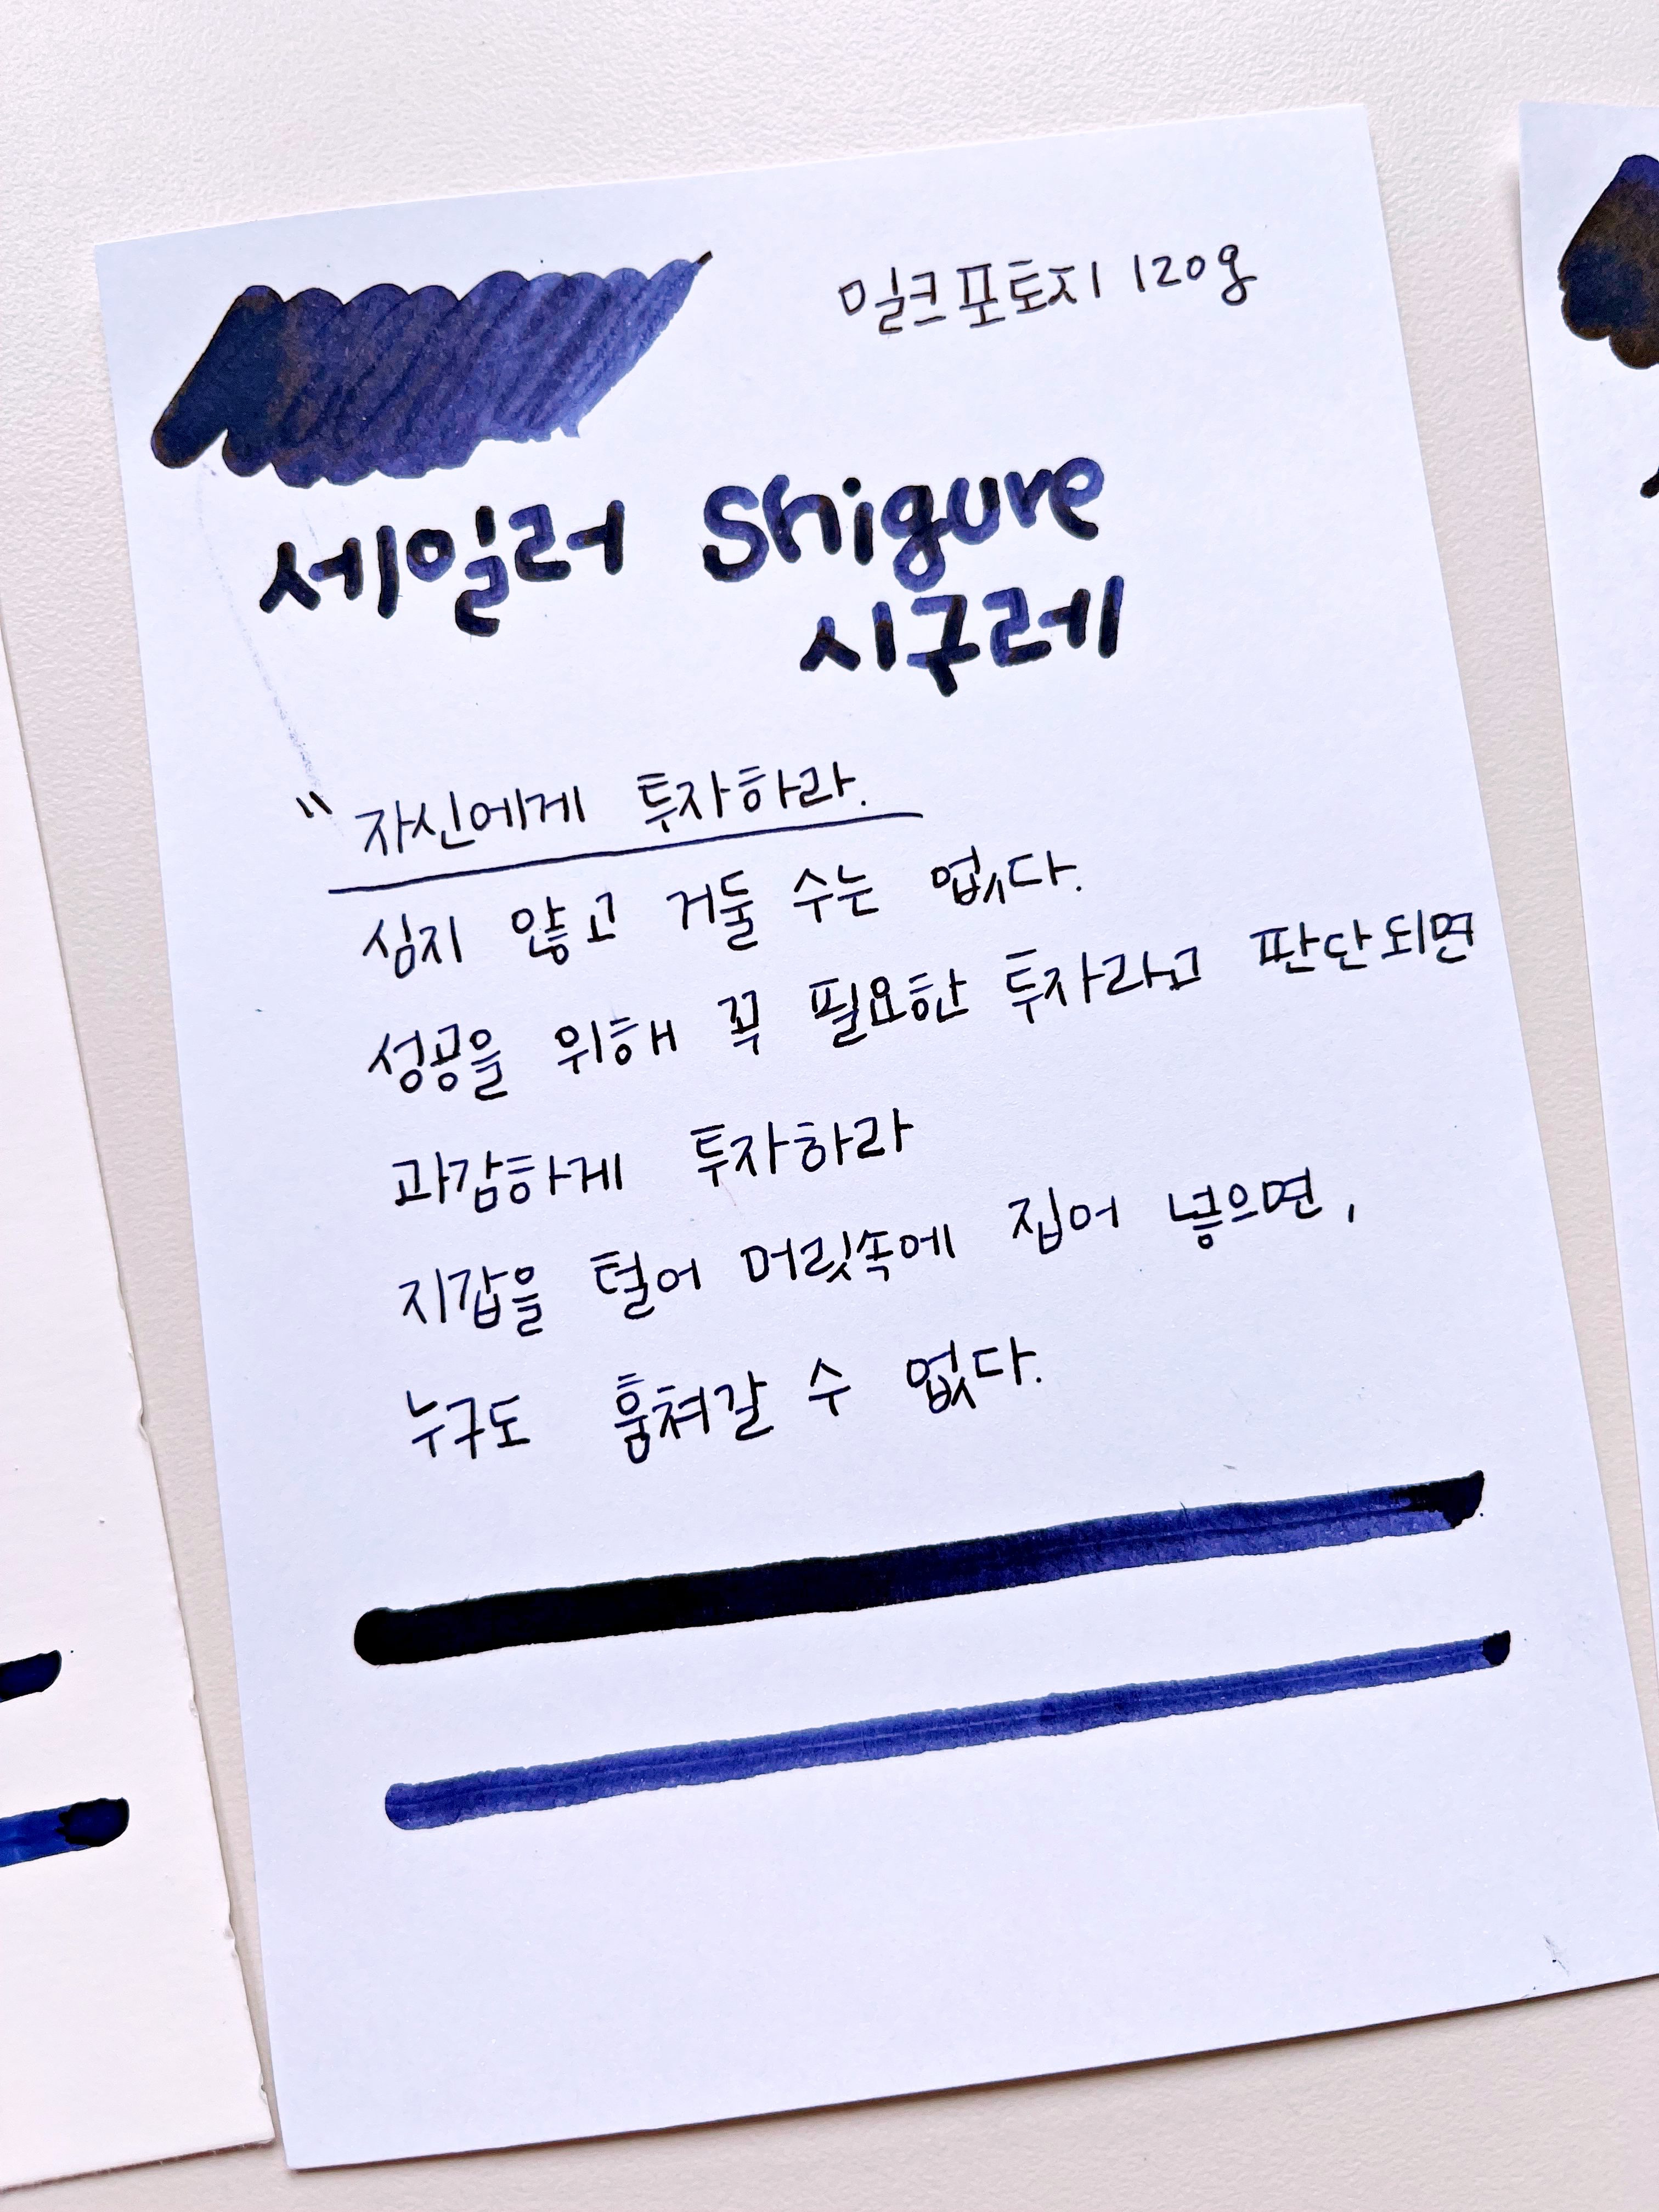 밀크포토지 120g
세일러 Shigure
시구레
"자신에게 투자하라.
심지 않고 거둘 수는 없다.
성공을 위해 꼭 필요한 투자라고 판단되면
과감하게 투자하라
지갑을 털어 머릿속에 집어 넣으면,
누구도 훔쳐갈 수 없다.